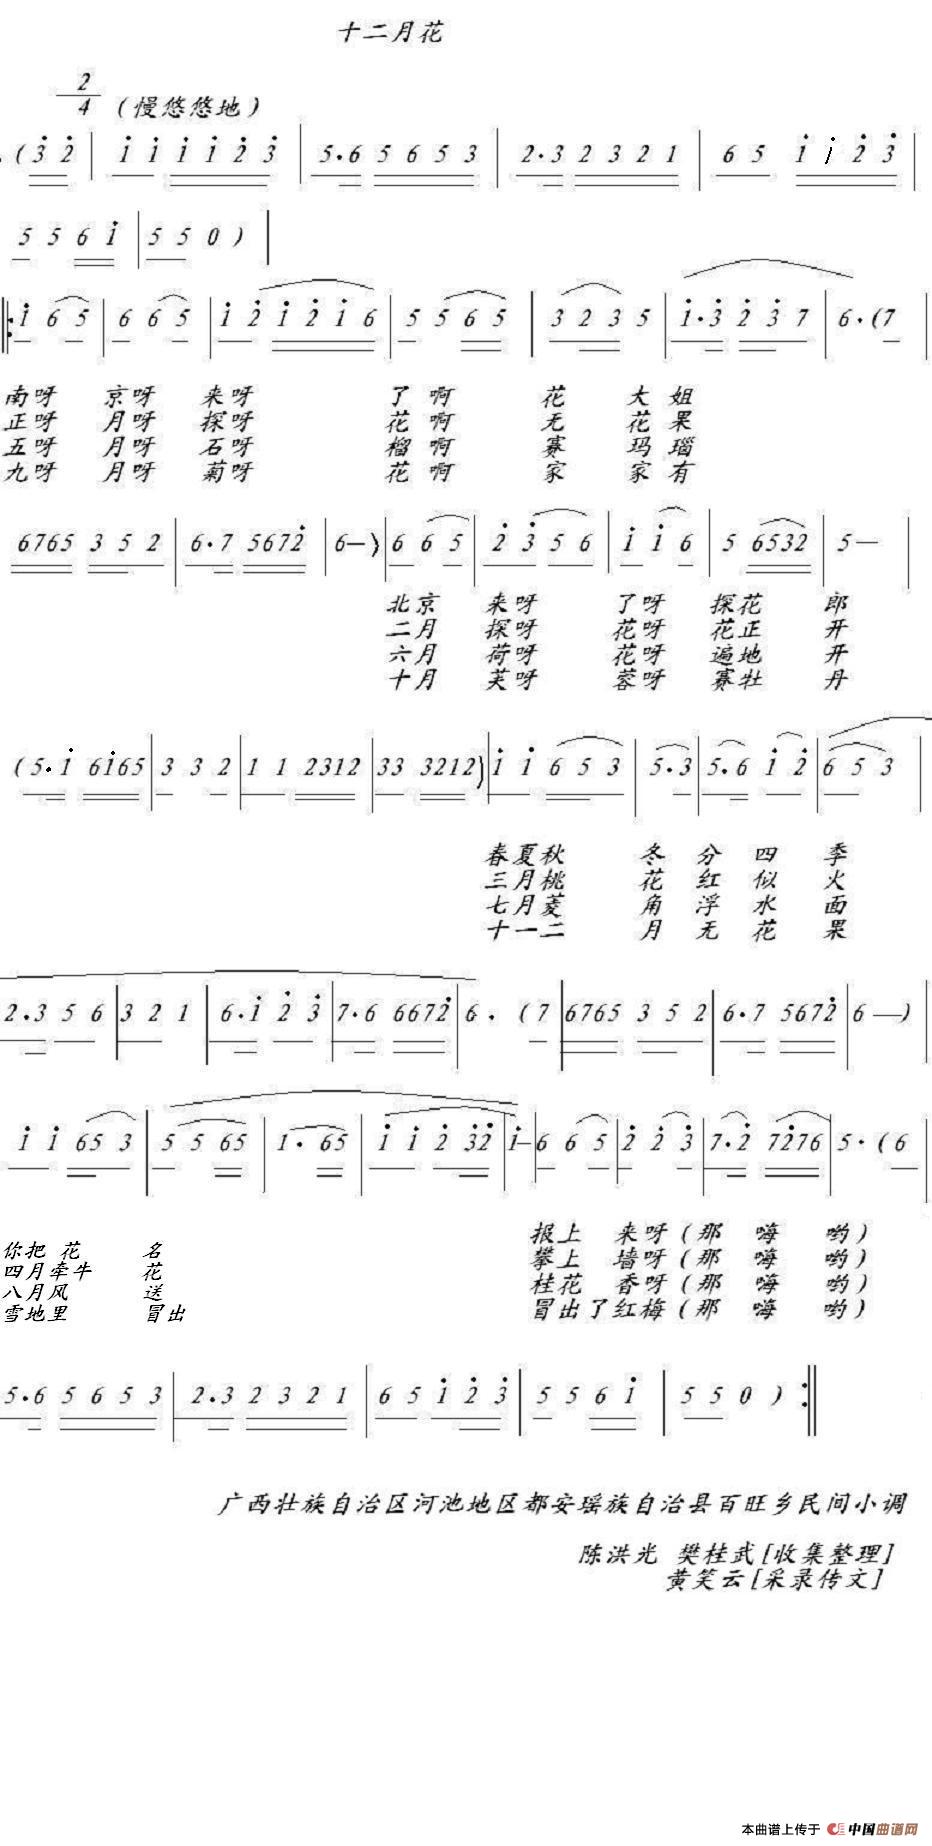 十二月花
2
4 (慢悠悠地)
. (3 2 | 1 1 1 1 2 3 | 5.6 5 6 5 3 | 2.3 2 3 2 1 | 6 5 1 i 2 3 |
5 5 6 1 | 5 5 0 ) |
1 6 5 | 6 6 5 | 1 2 1 2 1 6 | 5 5 6 5 | 3 2 3 5 | 1.3 2 3 7 | 6.(7 |
南呀 京呀 来呀 了啊 花 大姐
正呀 月呀 探呀 花啊 无 花果
五呀 月呀 石呀 榴啊 赛 玛瑙
九呀 月呀 菊呀 花啊 家 家有
6765 3 5 2 | 6.7 5672 | 6—) | 6 6 5 | 2 3 5 6 | 1 1 6 | 5 6532 | 5— |
北京 来呀 了呀 探花 郎
二月 探呀 花呀 花正 开
六月 荷呀 花呀 遍地 开
十月 芙呀 蓉呀 赛牡 丹
(5.1 6165 | 3 3 2 | 1 1 2312 | 33 3212) | 1 1 6 5 3 | 5.3 | 5.6 1 2 | 6 5 3 |
春夏秋 冬 分 四 季
三月桃 花 红 似 火
七月菱 角 浮 水 面
十一二 月 无 花 果
2.3 5 6 | 3 2 1 | 6.1 2 3 | 7.6 6672 | 6. (7 | 6765 3 5 2 | 6.7 5672 | 6—) |
1 1 65 3 | 5 5 65 | 1. 65 | 1 1 2 32 | 1— | 6 6 5 | 2 2 3 | 7.2 7276 | 5.(6 |
你把 花 名 报上 来呀(那 嗨 哟)
四月牵牛 花 攀上 墙呀(那 嗨 哟)
八月风 送 桂花 香呀(那 嗨 哟)
雪地里 冒出 冒出了红梅(那 嗨 哟)
5.6 5 6 5 3 | 2.3 2 3 2 1 | 6 5 1 2 3 | 5 5 6 1 | 5 5 0 ) :||
广西壮族自治区河池地区都安瑶族自治县百旺乡民间小调
陈洪光 樊桂武[收集整理]
黄笑云[采录传文]
本曲谱上传于 中国曲谱网